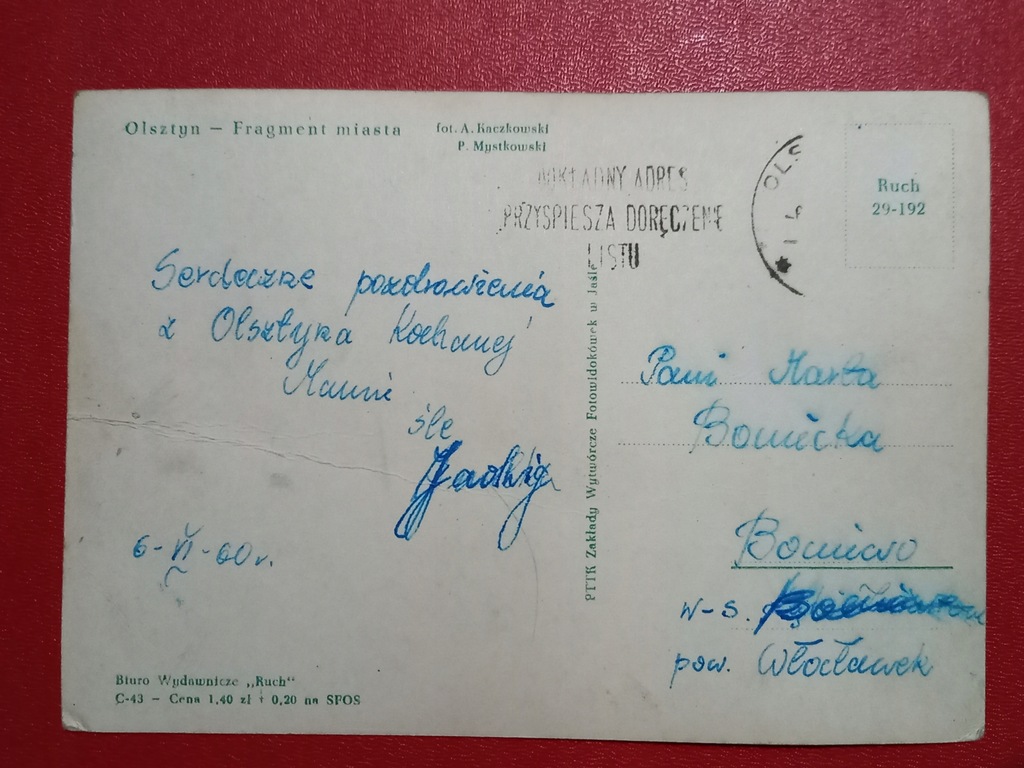 Olsztyn — Fragment miasta
fot. A. Kaczkowski
P. Mystkowski
DOKŁADNY ADRES
PRZYSPIESZA DORĘCZENIE
LISTU
OLS
Ruch
29-192
Serdeczne pozdrowienia
z Olsztyna Kochanej
Mamie
śle
6-VI-60r.
PTTK Zakłady Wytwórcze Fotowidokówek w Jaśle
Pani Marta
Boniecka
Boniewo
pow. Włocławek
Biuro Wydawnicze „Ruch"
C-43 — Cena 1,40 zł + 0,20 na SPOS